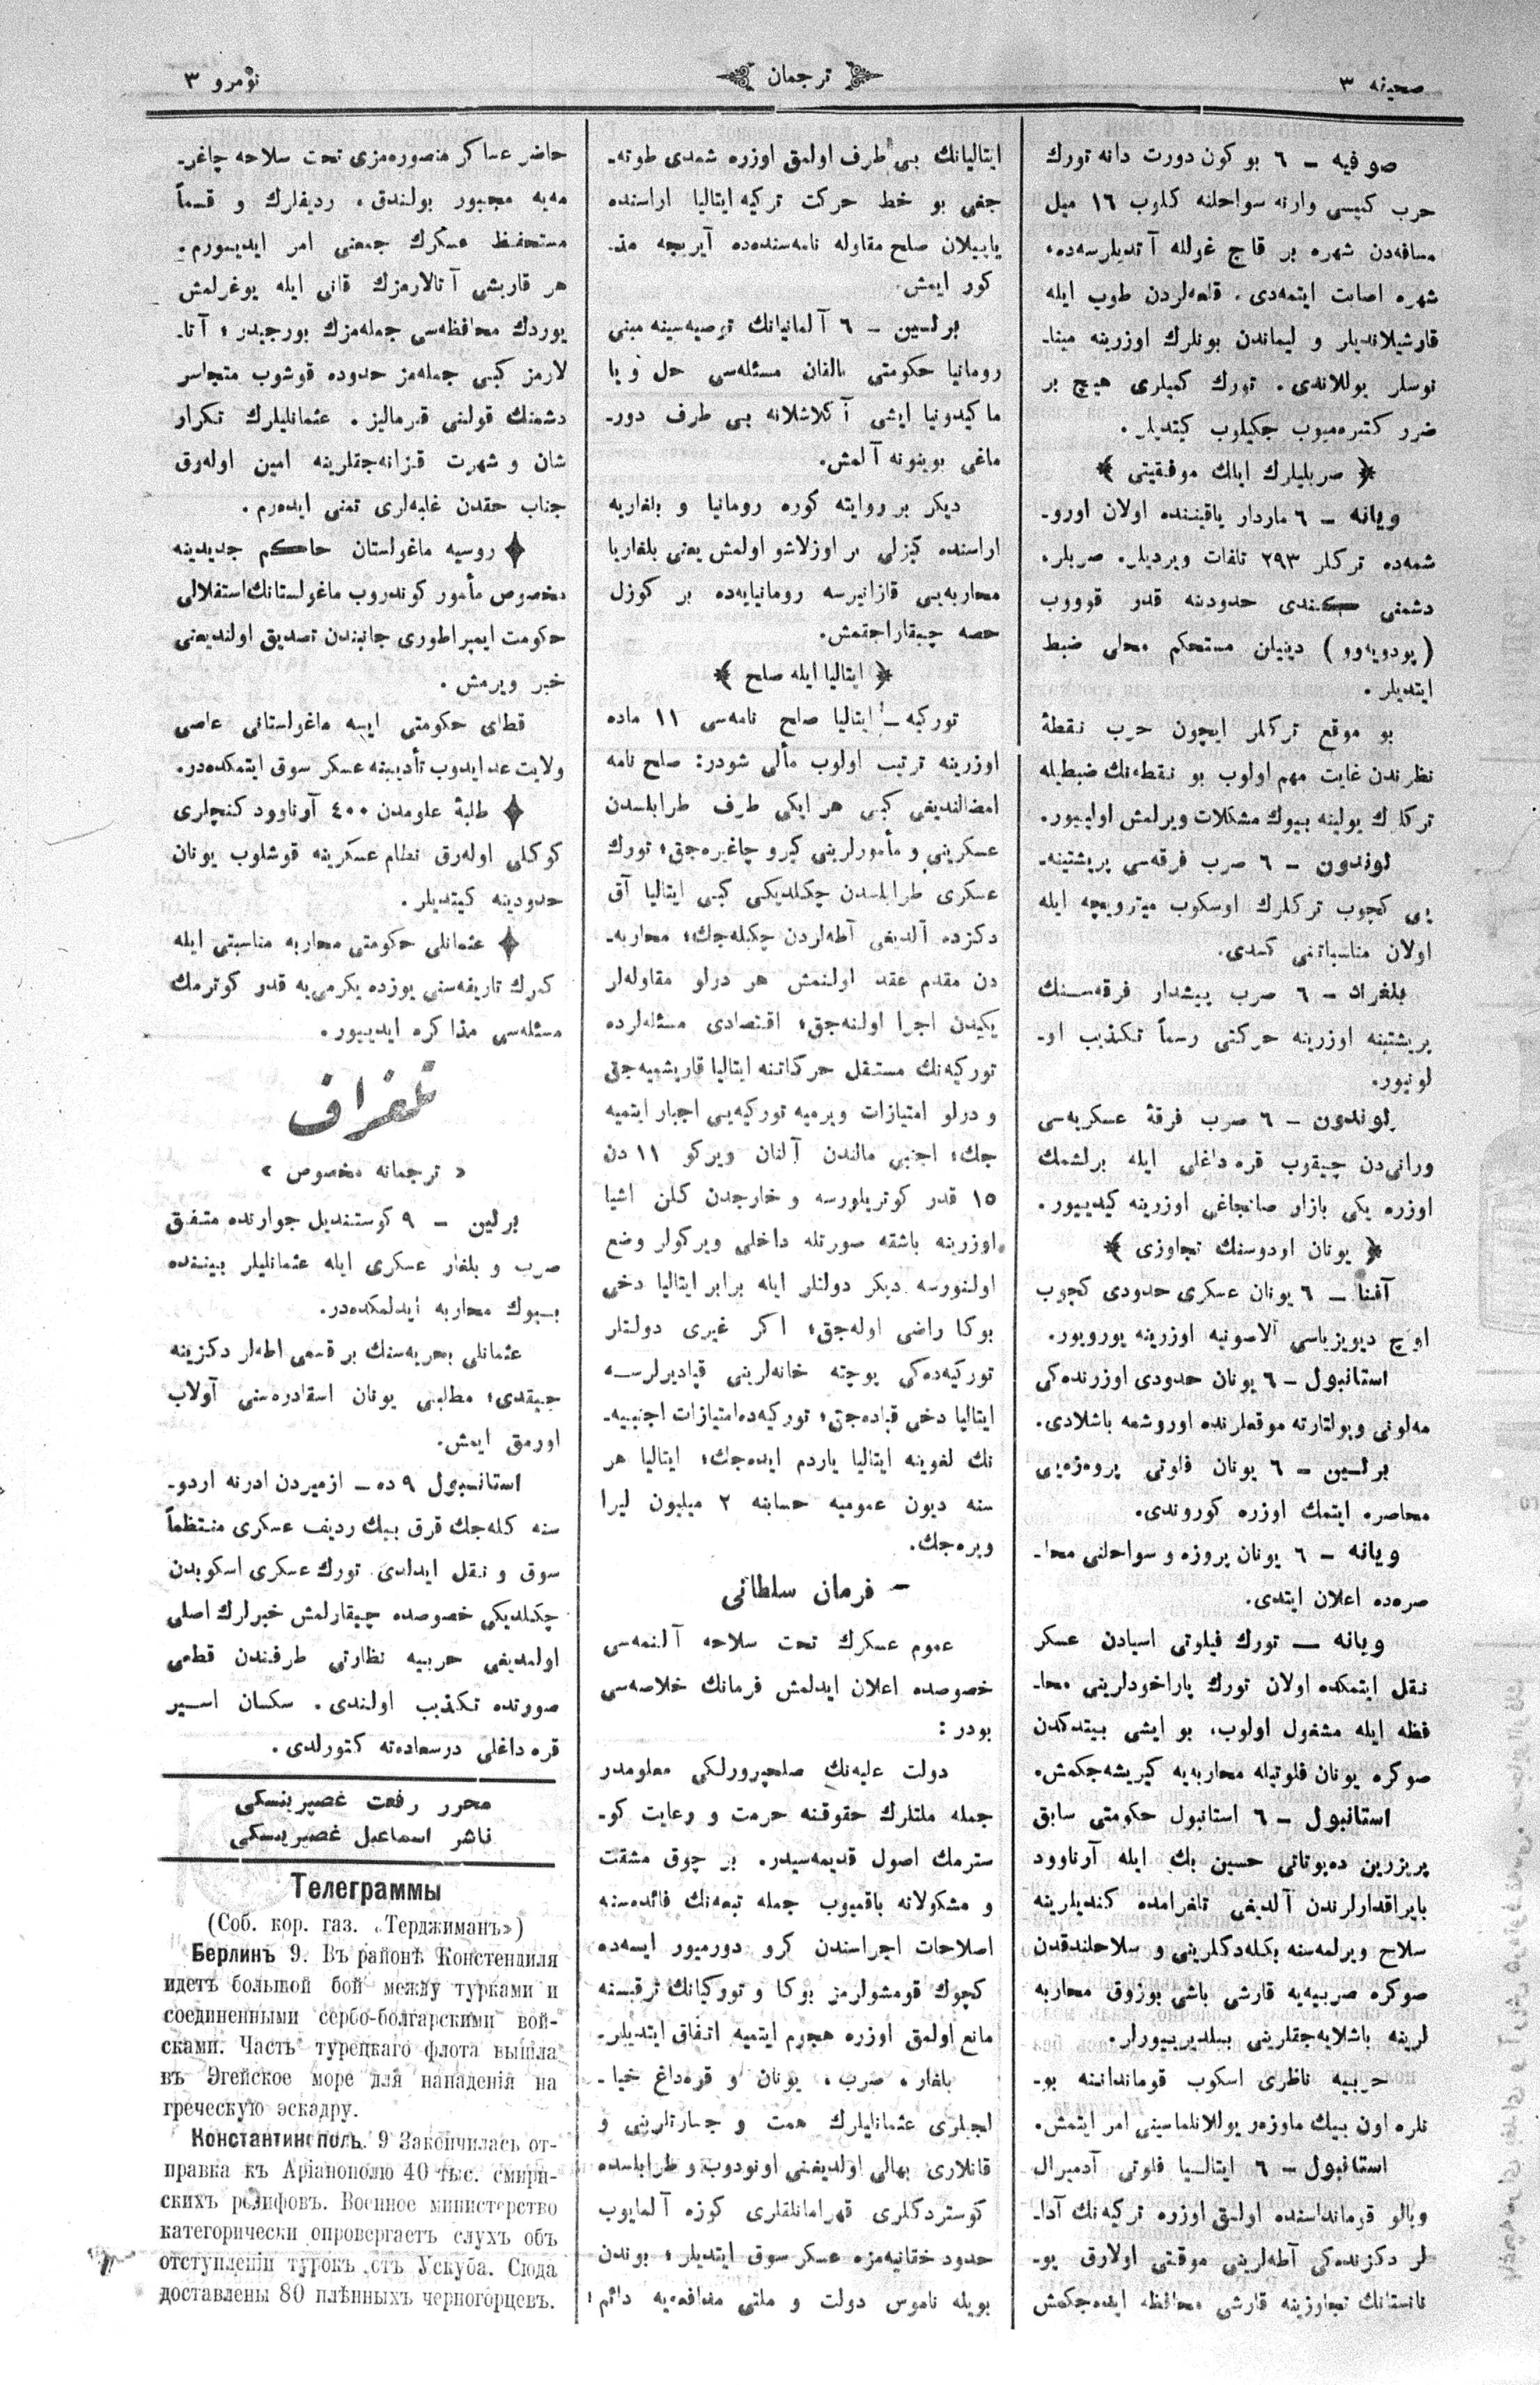 صحیفه ٣
ترجمان
نومرو ٣
صوفیه – ٦ بو کون دورت دانه تورك
حرب کمیسی وارنه سواحلنه کلوب ١٦ میل
مسافه‌دن شهره بر قاچ غولله آتدیلرسه‌ده،
شهره اصابت ایتمه‌دی. قلعه‌لردن طوب ایله
قارشیلاندیلر و لیماندن بونلرك اوزرینه مینا-
نوسلر یوللاندی. تورك کمیلری هیچ بر
ضرر کتیره‌میوب چکیلوب کیتدیلر.
﴿ صربلیلرك ایلك موفقیتی ﴾
ویانه – ٦ ماردار یاقیننده اولان اورو-
شمه‌ده ترکلر ٢٩٣ تلفات ویردیلر. صربلر،
دشمنی کندی حدودینه قدر قوووب
(پودویه‌وو) دینیلن مستحکم محلی ضبط
ایتدیلر.
بو موقع ترکلر ایچون حرب نقطهٔ
نظرندن غایت مهم اولوب بو نقطه‌نك ضبطیله
ترکلرك یولینه بیوك مشکلات ویرلمش اولییور.
لوندون – ٦ صرب فرقه‌سی پریشتینه-
یی کچوب ترکلرك اوسکوب میترویچه ایله
اولان مناسباتنی کسدی.
بلغراد – ٦ صرب پیشدار فرقه‌سنك
پریشتینه اوزرینه حرکتی رسماً تکذیب او-
لونیور.
لوندون – ٦ صرب فرقهٔ عسکریه‌سی
ورانی‌دن چیقوب قره داغلی ایله برلشمك
اوزره یکی بازار صانجاغی اوزرینه کیدییور.
﴿ یونان اردوسنك تجاوزی ﴾
آفنا – ٦ یونان عسکری حدودی کچوب
اوچ دیویزیاسی آلاصونیه اوزرینه یورویور.
استانبول – ٦ یونان حدودی اوزرنده‌کی
مه‌لونی وپولتارنه موقعلرنده اوروشمه باشلادی.
برلسین – ٦ یونان فلوتی پروه‌زه‌یی
محاصره ایتمك اوزره کوروندی.
ویانه – ٦ یونان پروزه و سواحلنی محا-
صره‌ده اعلان ایتدی.
ویانه — تورك فیلوتی اسیادن عسکر
نقل ایتمکده اولان تورك پاراخودلرینی محا-
فظه ایله مشغول اولوب، بو ایشی بیتدکدن
صوکره یونان فلوتیله محاربه‌یه کیریشه‌جکمش.
استانبول – ٦ استانبول حکومتی سابق
پریزرین ده‌پوتاتی حسین بك ایله آرناوود
بایراقدارلرندن آلدیغی تلغرامده کندیلرینه
سلاح ویرلمه‌سنه بکله‌دکلرینی و سلاحلندقدن
صوکره صربیه‌یه قارشی باشی بوزوق محاربه
لرینه باشلایه‌جقلرینی بیلدیریبورلر.
حربیه ناظری اسکوب قوماندانینه بو-
نلره اون بیك ماوزه‌ر یوللانلماسینی امر ایتمش.
استانبول – ٦ ایتالیا فلوتی آدمیرال
ویالو قومانداسنده اولمق اوزره ترکیه‌نك آدا-
لر دکزنده‌کی آطه‌لرینی موقتی اولارق یو-
نانستانك تجاوزینه قارشی محافظه ایده‌جکمش
ایتالیانك بی طرف اولمق اوزره شمدی طوته-
جغی بو خط حرکت ترکیه ایتالیا اراسنده
یاپیلان صلح مقاوله نامه‌سنده‌ده آیریجه مذ-
کور ایمش.
برلسین – ٦ آلمانیانك توصیه‌سینه مبنی
رومانیا حکومتی بالقان مسئله‌سی حل و یا
ماکیدونیا ایشی آکلاشلانه بی طرف دور-
ماغی بوینونه آلمش.
دیکر بر روایته کوره رومانیا و بلغاریه
اراسنده کیزلی بر اوزلاشو اولمش یعنی بلغاریا
محاربه‌یی قازانیرسه رومانیایه‌ده بر کوزل
حصه چیقاراجقمش.
﴿ ایتالیا ایله صلح ﴾
تورکیه – ایتالیا صلح نامه‌سی ١١ ماده
اوزرینه ترتیب اولوب مألی شودر: صلح نامه
امضالندیغی کبی هر ایکی طرف طرابلسدن
عسکرینی و مأمورلرینی کیرو چاغیره‌جق؛ تورك
عسکری طرابلسدن چکلدیکی کبی ایتالیا آق
دکزده آلدیغی آطه‌لردن چکیله‌جك؛ محاربه-
دن مقدم عقد اولنمش هر درلو مقاوله‌لر
یکیدن اجرا اولنه‌جق؛ اقتصادی مسئله‌لرده
تورکیه‌نك مستقل حرکاتنه ایتالیا قاریشمیه‌جق
و درلو امتیازات ویرمیه تورکیه‌یی اجبار ایتمیه
جك؛ اجنبی مالندن آلنان ویرکو ١١ دن
١٥ قدر کوتریلورسه و خارجدن کلن اشیا
اوزرینه باشقه صورتله داخلی ویرکولر وضع
اولنورسه دیکر دولتلر ایله برابر ایتالیا دخی
بوکا راضی اوله‌جق؛ اکر غیری دولتلر
تورکیه‌ده‌کی پوچته خانه‌لرینی قپادیرلرسه
ایتالیا دخی قپاده‌جق؛ تورکیه‌ده امتیازات اجنبیه-
نك لغوینه ایتالیا یاردم ایده‌جك؛ ایتالیا هر
سنه دیون عمومیه حسابنه ٢ میلیون لیرا
ویره‌جك.
– فرمان سلطانی
عموم عسکرك تحت سلاحه آلنمه‌سی
خصوصده اعلان ایدلمش فرمانك خلاصه‌سی
بودر:
دولت علیه‌نك صلحپرورلکی معلومدر
جمله ملتلرك حقوقنه حرمت و رعایت کو-
سترمك اصول قدیمه‌سیدر. بر چوق مشقت
و مشکولانه باقمیوب جمله تبعه‌نك فائده‌سنه
اصلاحات اجراسندن کرو دورمیور ایسه‌ده
کچوك قومشولرمز بوکا و تورکیانك ترقیسنه
مانع اولمق اوزره هجوم ایتمیه اتفاق ایتدیلر.
بلغار، صرب، یونان و قره‌داغ خیا-
لجلری عثمانلیلرك همت و جسارتلرینی و
قانلاری بهالی اولدیغنی اونودوب و طرابلسده
کوستردکلری قهرمانلقلری کوزه آلمایوب
حدود خقانیه‌مزه عسکر سوق ایتدیلر؛ بوندن
بویله ناموس دولت و ملتی مدافعه‌یه دائم؛
حاضر عساکر منصوره‌مزی تحت سلاحه چاغر-
مه‌یه مجبور بولندق. ردیفلرك و قسماً
مستحفظ عسکرك جمعنی امر ایدییورم.
هر قاریشی آتالارمزك قانی ایله یوغرلمش
یوردك محافظه‌سی جمله‌مزك بورجیدر؛ آتا-
لارمز کبی جمله‌مز حدوده قوشوب متجاسر
دشمنك قولنی قیرمالیز. عثمانلیلرك تکرار
شان و شهرت قزانه‌جقلرینه امین اوله‌رق
جناب حقدن غلبه‌لری تمنی ایده‌رم.
روسیه ماغولستان حاکم جدیدینه
مخصوص مأمور کوندروب ماغولستانك استقلالی
حکومت ایمپراطوری جانبندن تصدیق اولندیغنی
خبر ویرمش.
قطای حکومتی ایسه ماغولستانی عاصی
ولایت عد ایدوب تأدیبینه عسکر سوق ایتمکده‌در.
طلبهٔ علومدن ٤٠٠ آرناوود کنجلری
کوکلی اوله‌رق نظام عسکرینه قوشلوب یونان
حدودینه کیتدیلر.
عثمانلی حکومتی محاربه مناسبتی ایله
کمرك تاریفه‌سنی یوزده یکرمی‌یه قدر کوترمك
مسئله‌سی مذاکره ایدییور.
تلغراف
« ترجمانه مخصوص »
برلین – ٩ کوستندیل جوارنده متفق
صرب و بلغار عسکری ایله عثمانلیلر بیننده
بیوك محاربه ایدلمکده‌در.
عثمانلی بحریه‌سنك بر قسمی اطه‌لر دکزینه
چیقدی؛ مطلبی یونان اسقادره‌سنی آولاب
اورمق ایمش.
استانبول ٩ ده – ازمیردن ادرنه اردو-
سنه کله‌جك قرق بیك ردیف عسکری منتظماً
سوق و نقل ایدلدی. تورك عسکری اسکوبدن
چکلدیکی خصوصده چیقارلمش خبرلرك اصلی
اولمدیغی حربیه نظارتی طرفندن قطعی
صورتده تکذیب اولندی. سکسان اسیر
قره داغلی درسعادته کتورلدی.
محرر رفعت غصپرینسکی
ناشر اسماعیل غصپرینسکی
Телеграммы
(Соб. кор. газ. «Терджиманъ»)
Берлинъ 9. Въ районѣ Констендиля
идетъ большой бой между турками и
соединенными сербо-болгарскими вой-
сками. Часть турецкаго флота вышла
въ Эгейское море для нападенія на
греческую эскадру.
Константинополь. 9 Закончилась от-
правка къ Адріанополю 40 тыс. смирн-
скихъ редифовъ. Военное министерство
категорически опровергаетъ слухъ объ
отступленіи турокъ отъ Ускуба. Сюда
доставлены 80 плѣнныхъ черногорцевъ.